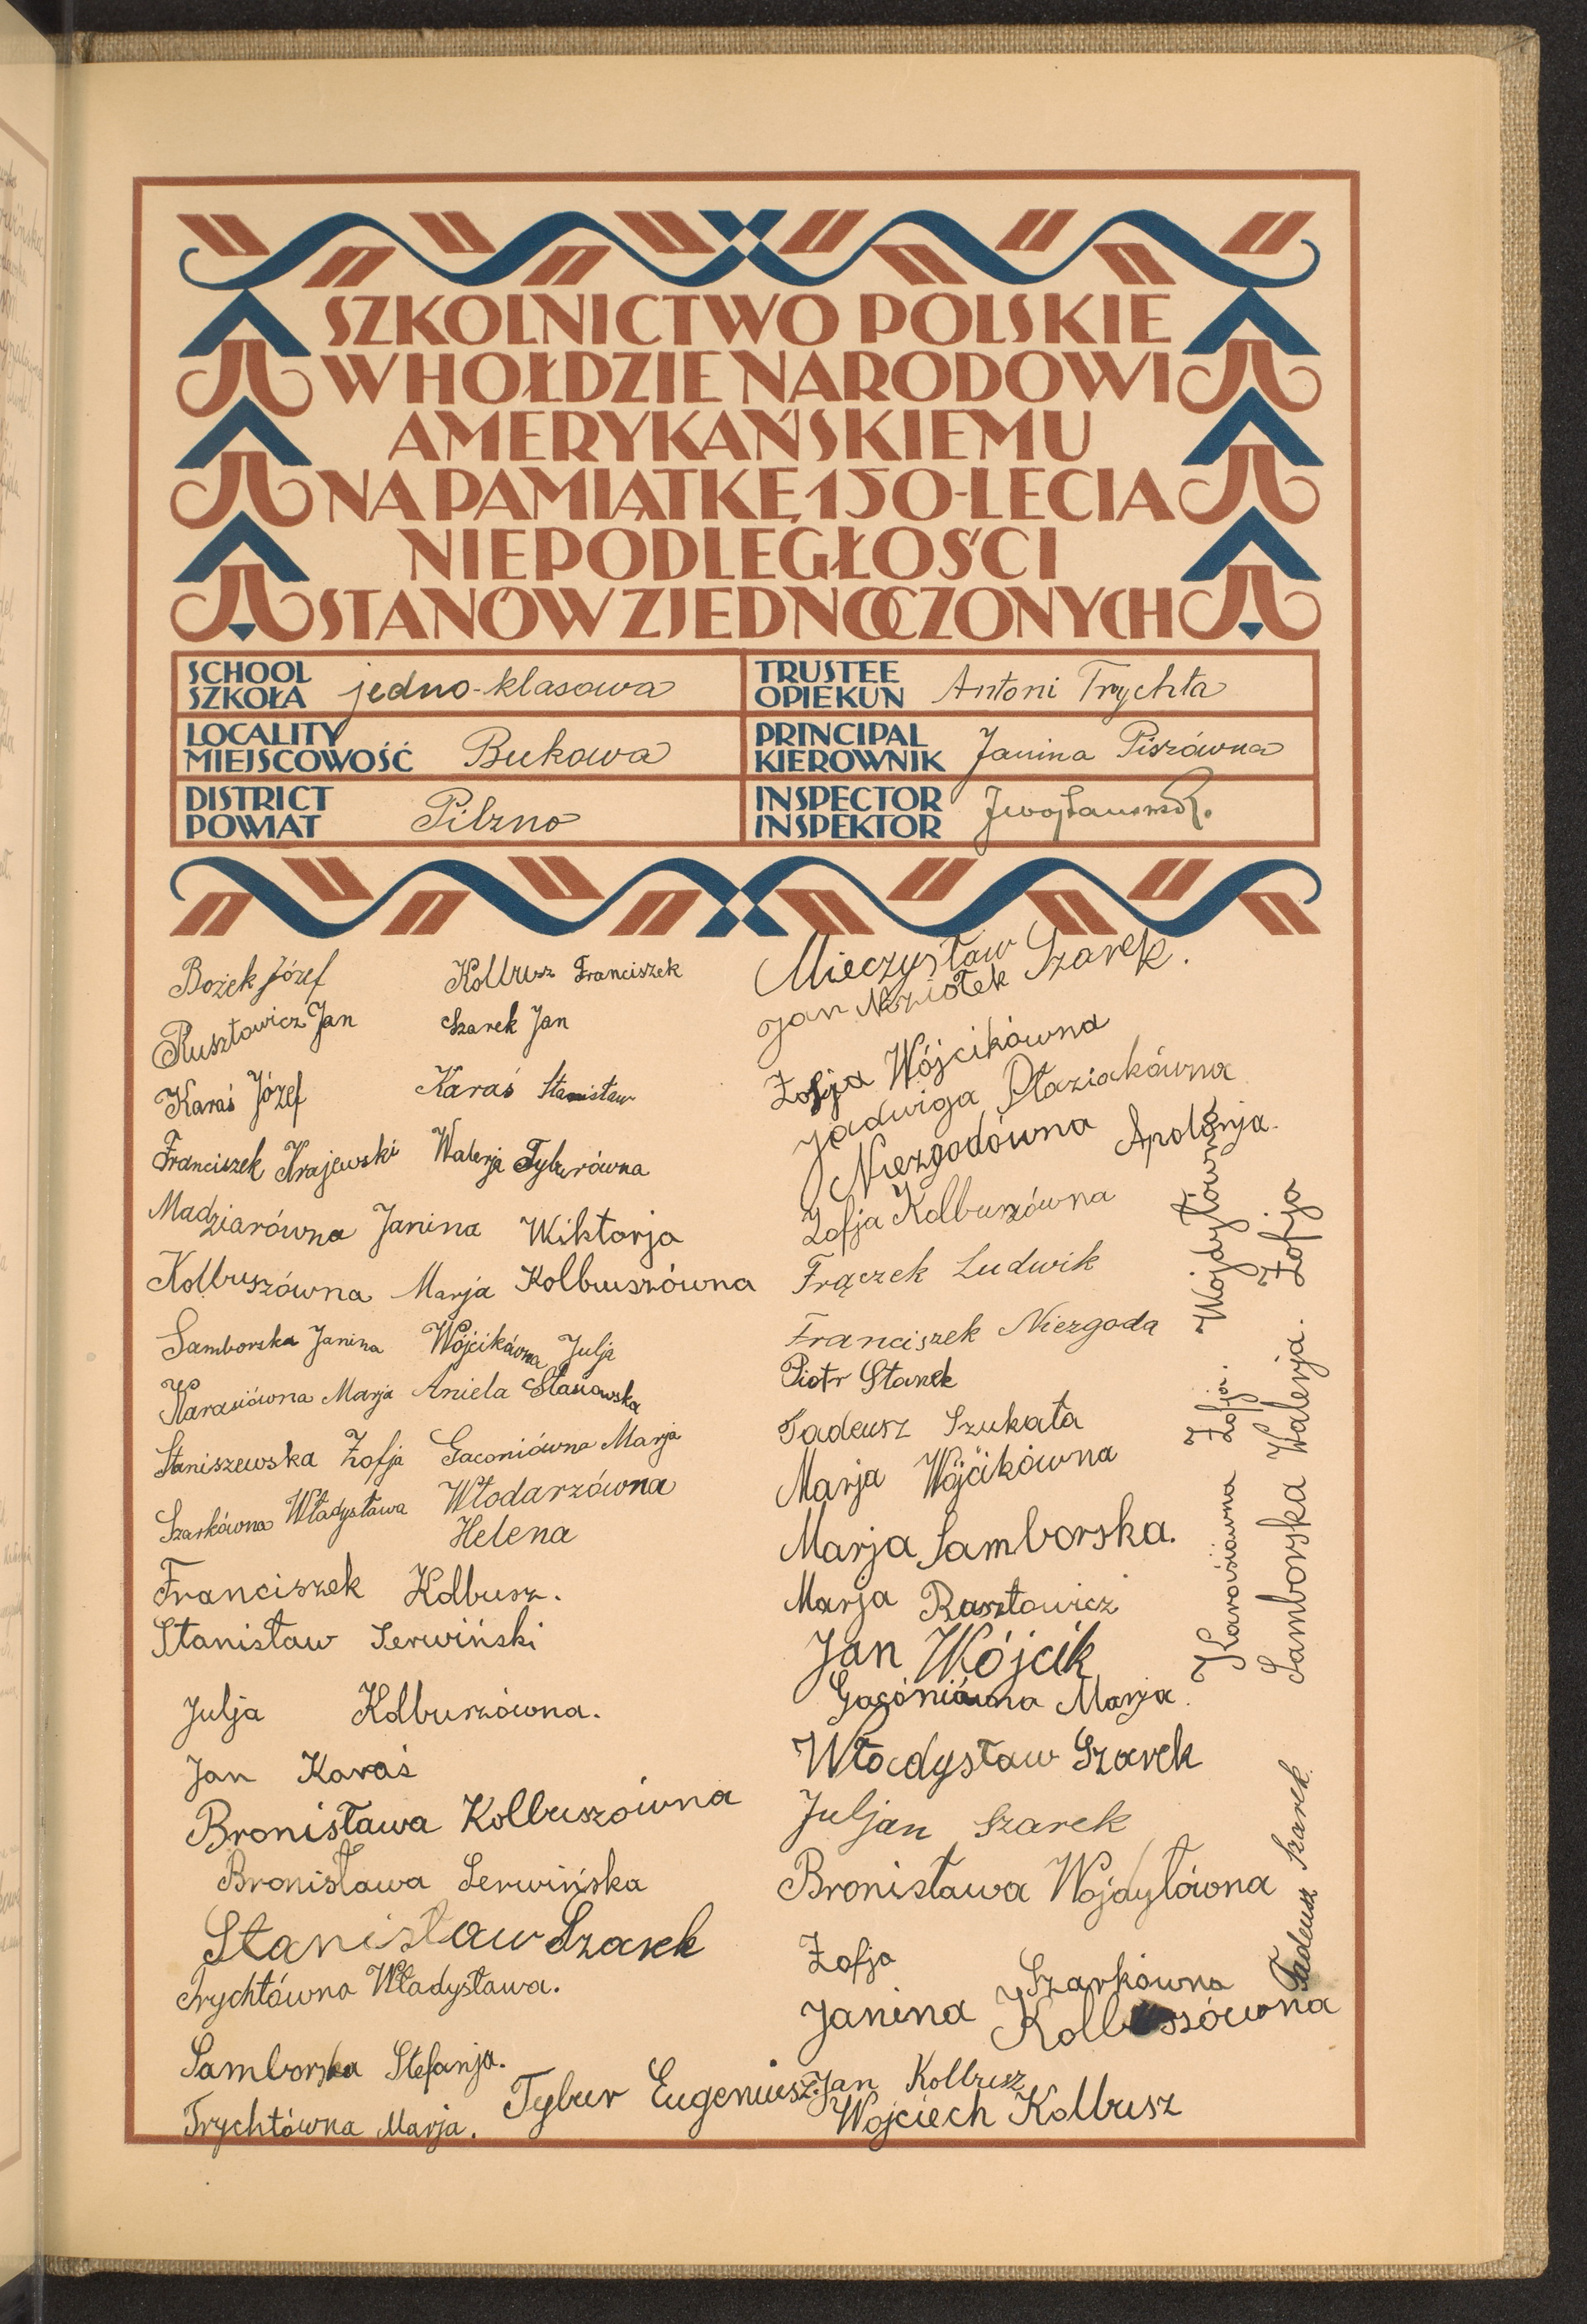 SZKOLNICTWO POLSKIE
W HOŁDZIE NARODOWI
AMERYKAŃSKIEMU
NA PAMIĄTKĘ 150-LECIA
NIEPODLEGŁOŚCI
STANÓW ZJEDNOCZONYCH
SCHOOL
SZKOŁA jedno-klasowa
TRUSTEE
OPIEKUN Antoni Trychta
LOCALITY
MIEJSCOWOŚĆ Bukowa
PRINCIPAL
KIEROWNIK Janina Piszówna
DISTRICT
POWIAT Pilzno
INSPECTOR
INSPEKTOR
Bożek Józef
Kolbusz Franciszek
Rusztowicz Jan
Szarek Jan
Karaś Józef
Karaś Stanisław
Franciszek Krajewski
Walerja Tyburówna
Madziarówna Janina
Wiktorja
Kolbuszówna Marja
Kolbuszówna
Samborska Janina
Wójcikówna Julja
Karasiówna Marja
Aniela Stasowska
Staniszewska Zofja
Gaconiówna Marja
Szarkówna Władysława
Włodarzówna
Helena
Franciszek Kolbusz.
Stanisław Serwiński
Julja Kolbuszówna.
Jan Karaś
Bronisława Kolbuszówna
Bronisława Serwińska
Stanisław Szarek
Trychtówna Władysława.
Samborska Stefanja.
Trychtówna Marja.
Tybur Eugeniusz.
Mieczysław Szarek.
Jan Noziołek
Zofja Wójcikówna
Jadwiga Płaziakówna
Niezgodówna Apolonja.
Zofja Kolbuszówna
Frączek Ludwik
Franciszek Niezgoda
Piotr Stanek
Tadeusz Szukała
Marja Wójcikówna
Marja Samborska.
Marja Rusztowicz
Jan Wójcik
Gacóniówna Marja.
Władysław Szarek
Juljan Szarek
Bronisława Wojdyłówna
Zofja
Szarkówna
Janina Kolbuszówna
Jan Kolbusz
Wojciech Kolbusz
Karasiówna Zofja. Wojdyłówna
Samborska Walerja. Zofja
Tadeusz Szarek.